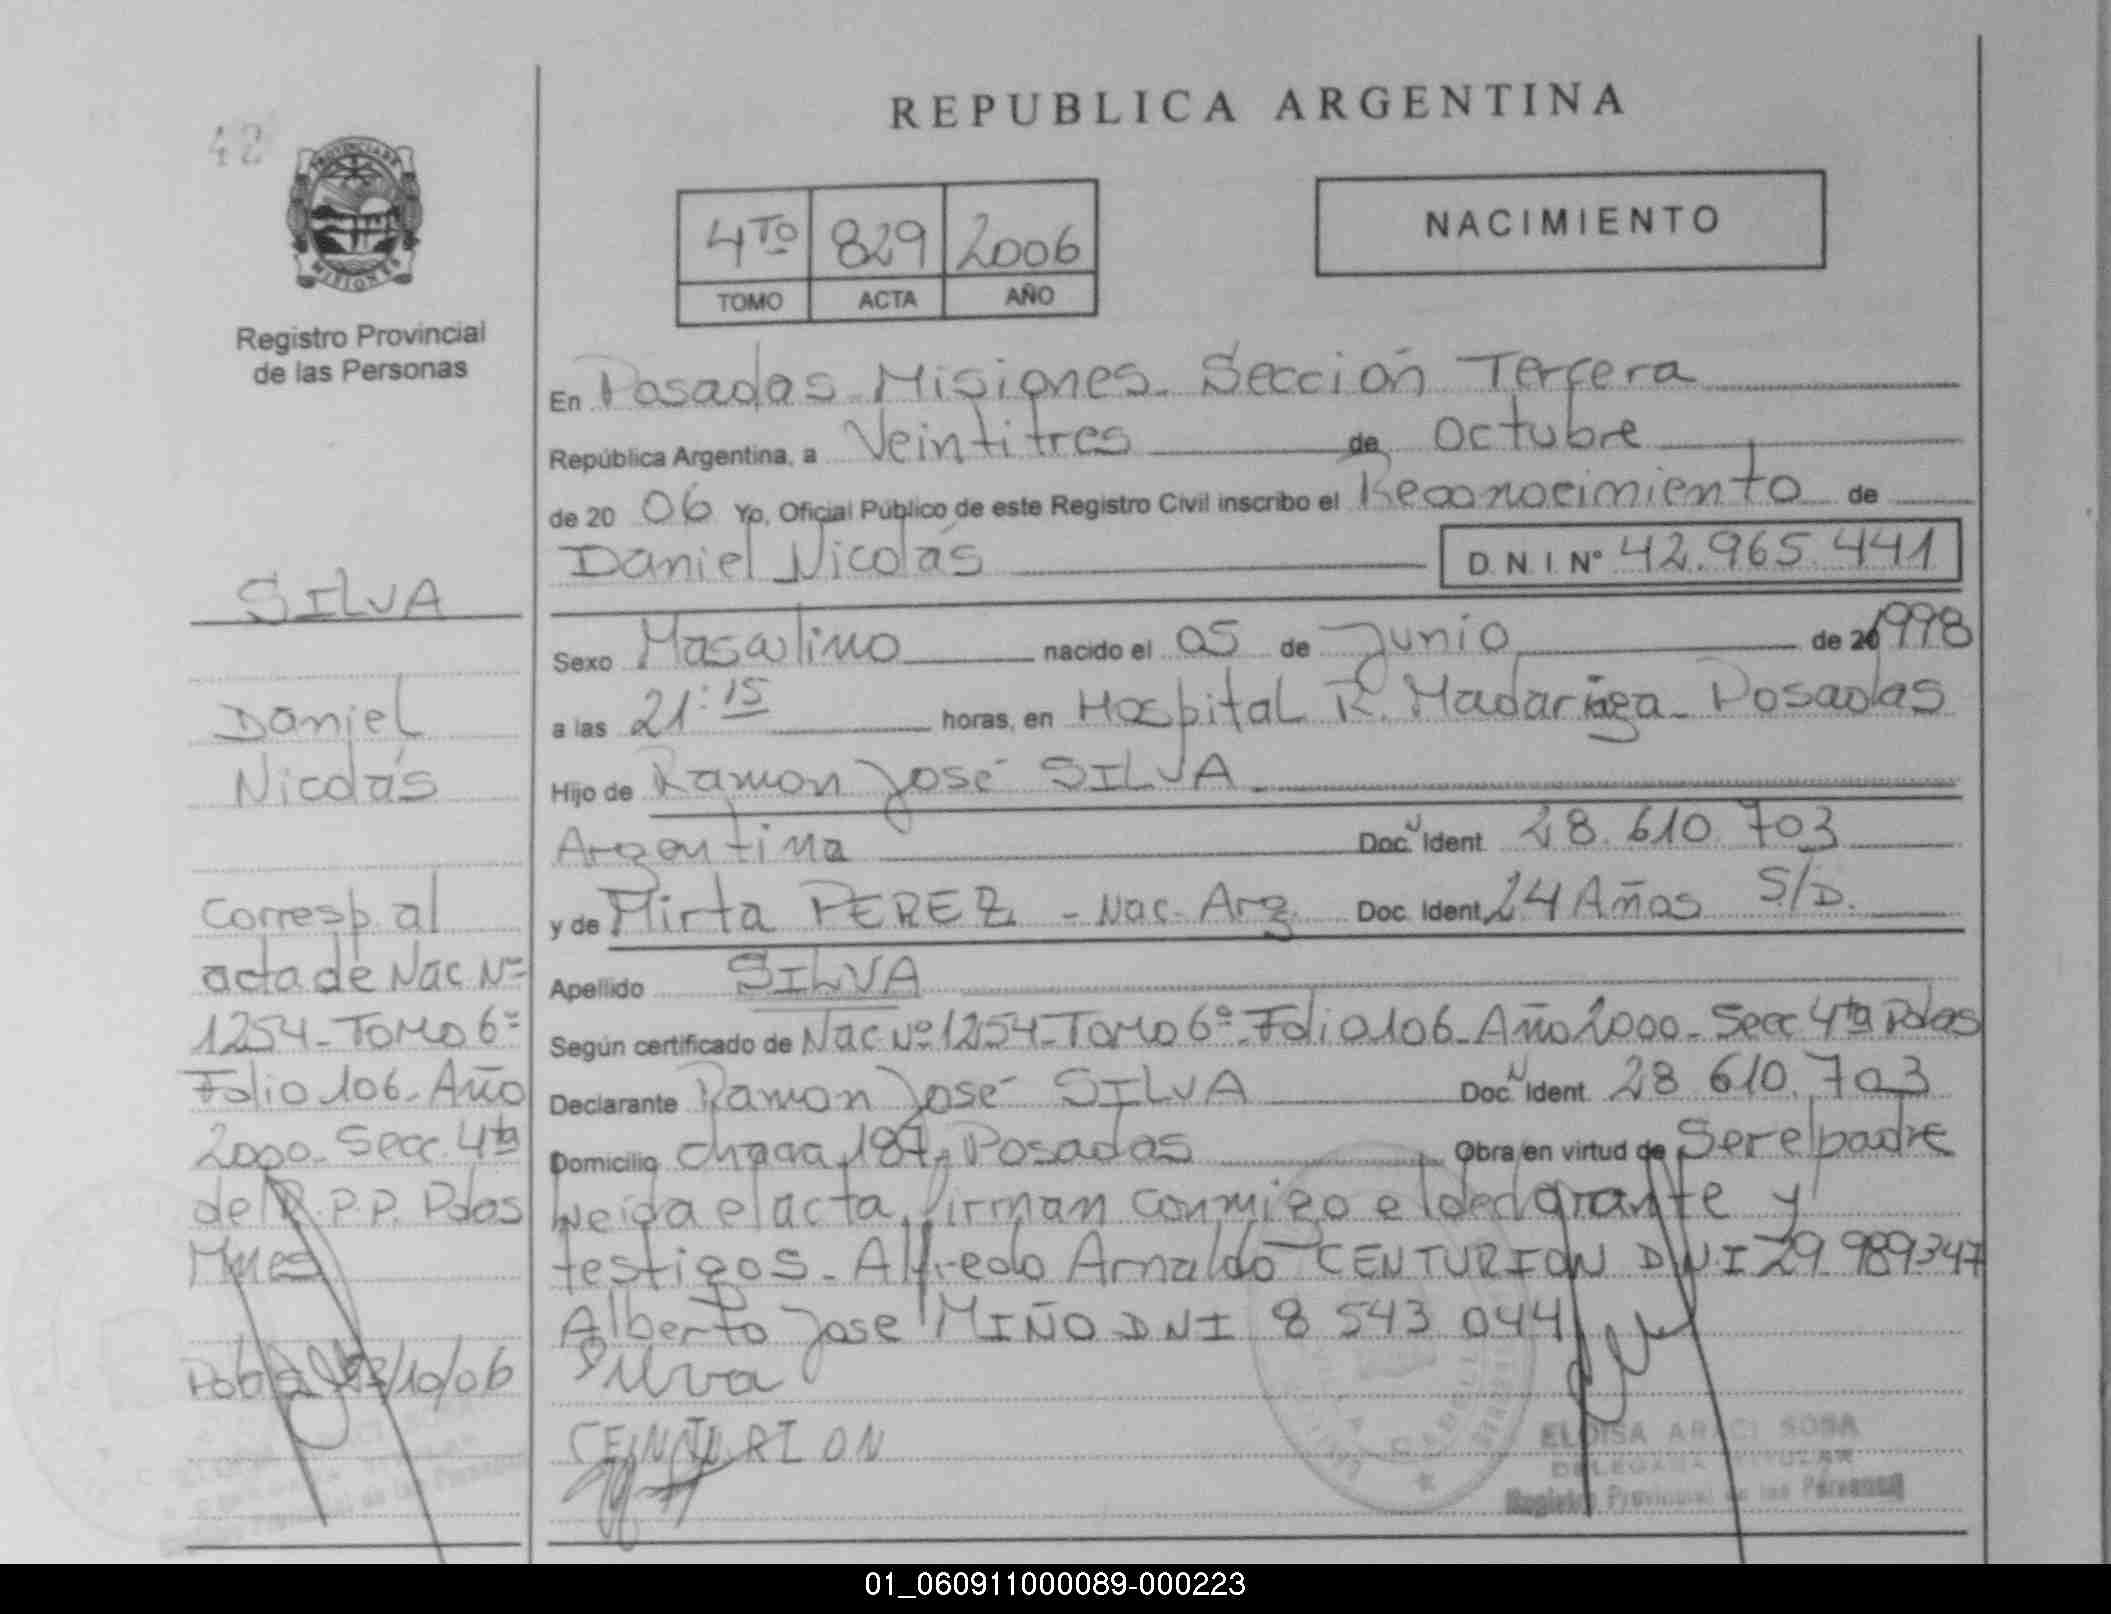 REPUBLICA ARGENTINA
42
PROVINCIA DE
MISIONES
Registro Provincial
de las Personas
4TO 829 2006
TOMO ACTA AÑO
NACIMIENTO
En Posadas Misiones. Sección Tercera
República Argentina, a Veintitres de Octubre
de 20 06 Yo, Oficial Público de este Registro Civil inscribo el Reconocimiento de
Daniel Nicolás D.N.I. Nº 42.965.441
Sexo Masculino nacido el 05 de Junio de 1998
a las 21:15 horas, en Hospital R. Madariaga - Posadas
Hijo de Ramon José SILVA
Argentina Doc. Ident. 28.610.703
y de Mirta PEREZ - Nac. Arg. Doc. Ident. 24 Años S/D.
Apellido SILVA
Según certificado de Nac Nº 1254 - Tomo 6º - Folio 106 - Año 2000 - Secc 4ta Pdas
Declarante Ramon José SILVA Doc. Ident. 28.610.703
Domicilio chacra 187 - Posadas Obra en virtud de Ser el padre
Leida el acta, firman conmigo el declarante y
testigos - Alfredo Arnaldo CENTURION DNI 29 989347
Alberto Jose MIÑO DNI 8 543 044
Silva
CENTURION
ELOISA ARACI SOSA
DELEGADA TITULAR
Registro Provincial de las Personas
SILVA
Daniel
Nicolás
Corresp. al
acta de Nac Nº
1254 - Tomo 6º
Folio 106 - Año
2000 - Secc. 4ta
del R.P.P. Pdas
Mnes
23/10/06
01_060911000089-000223